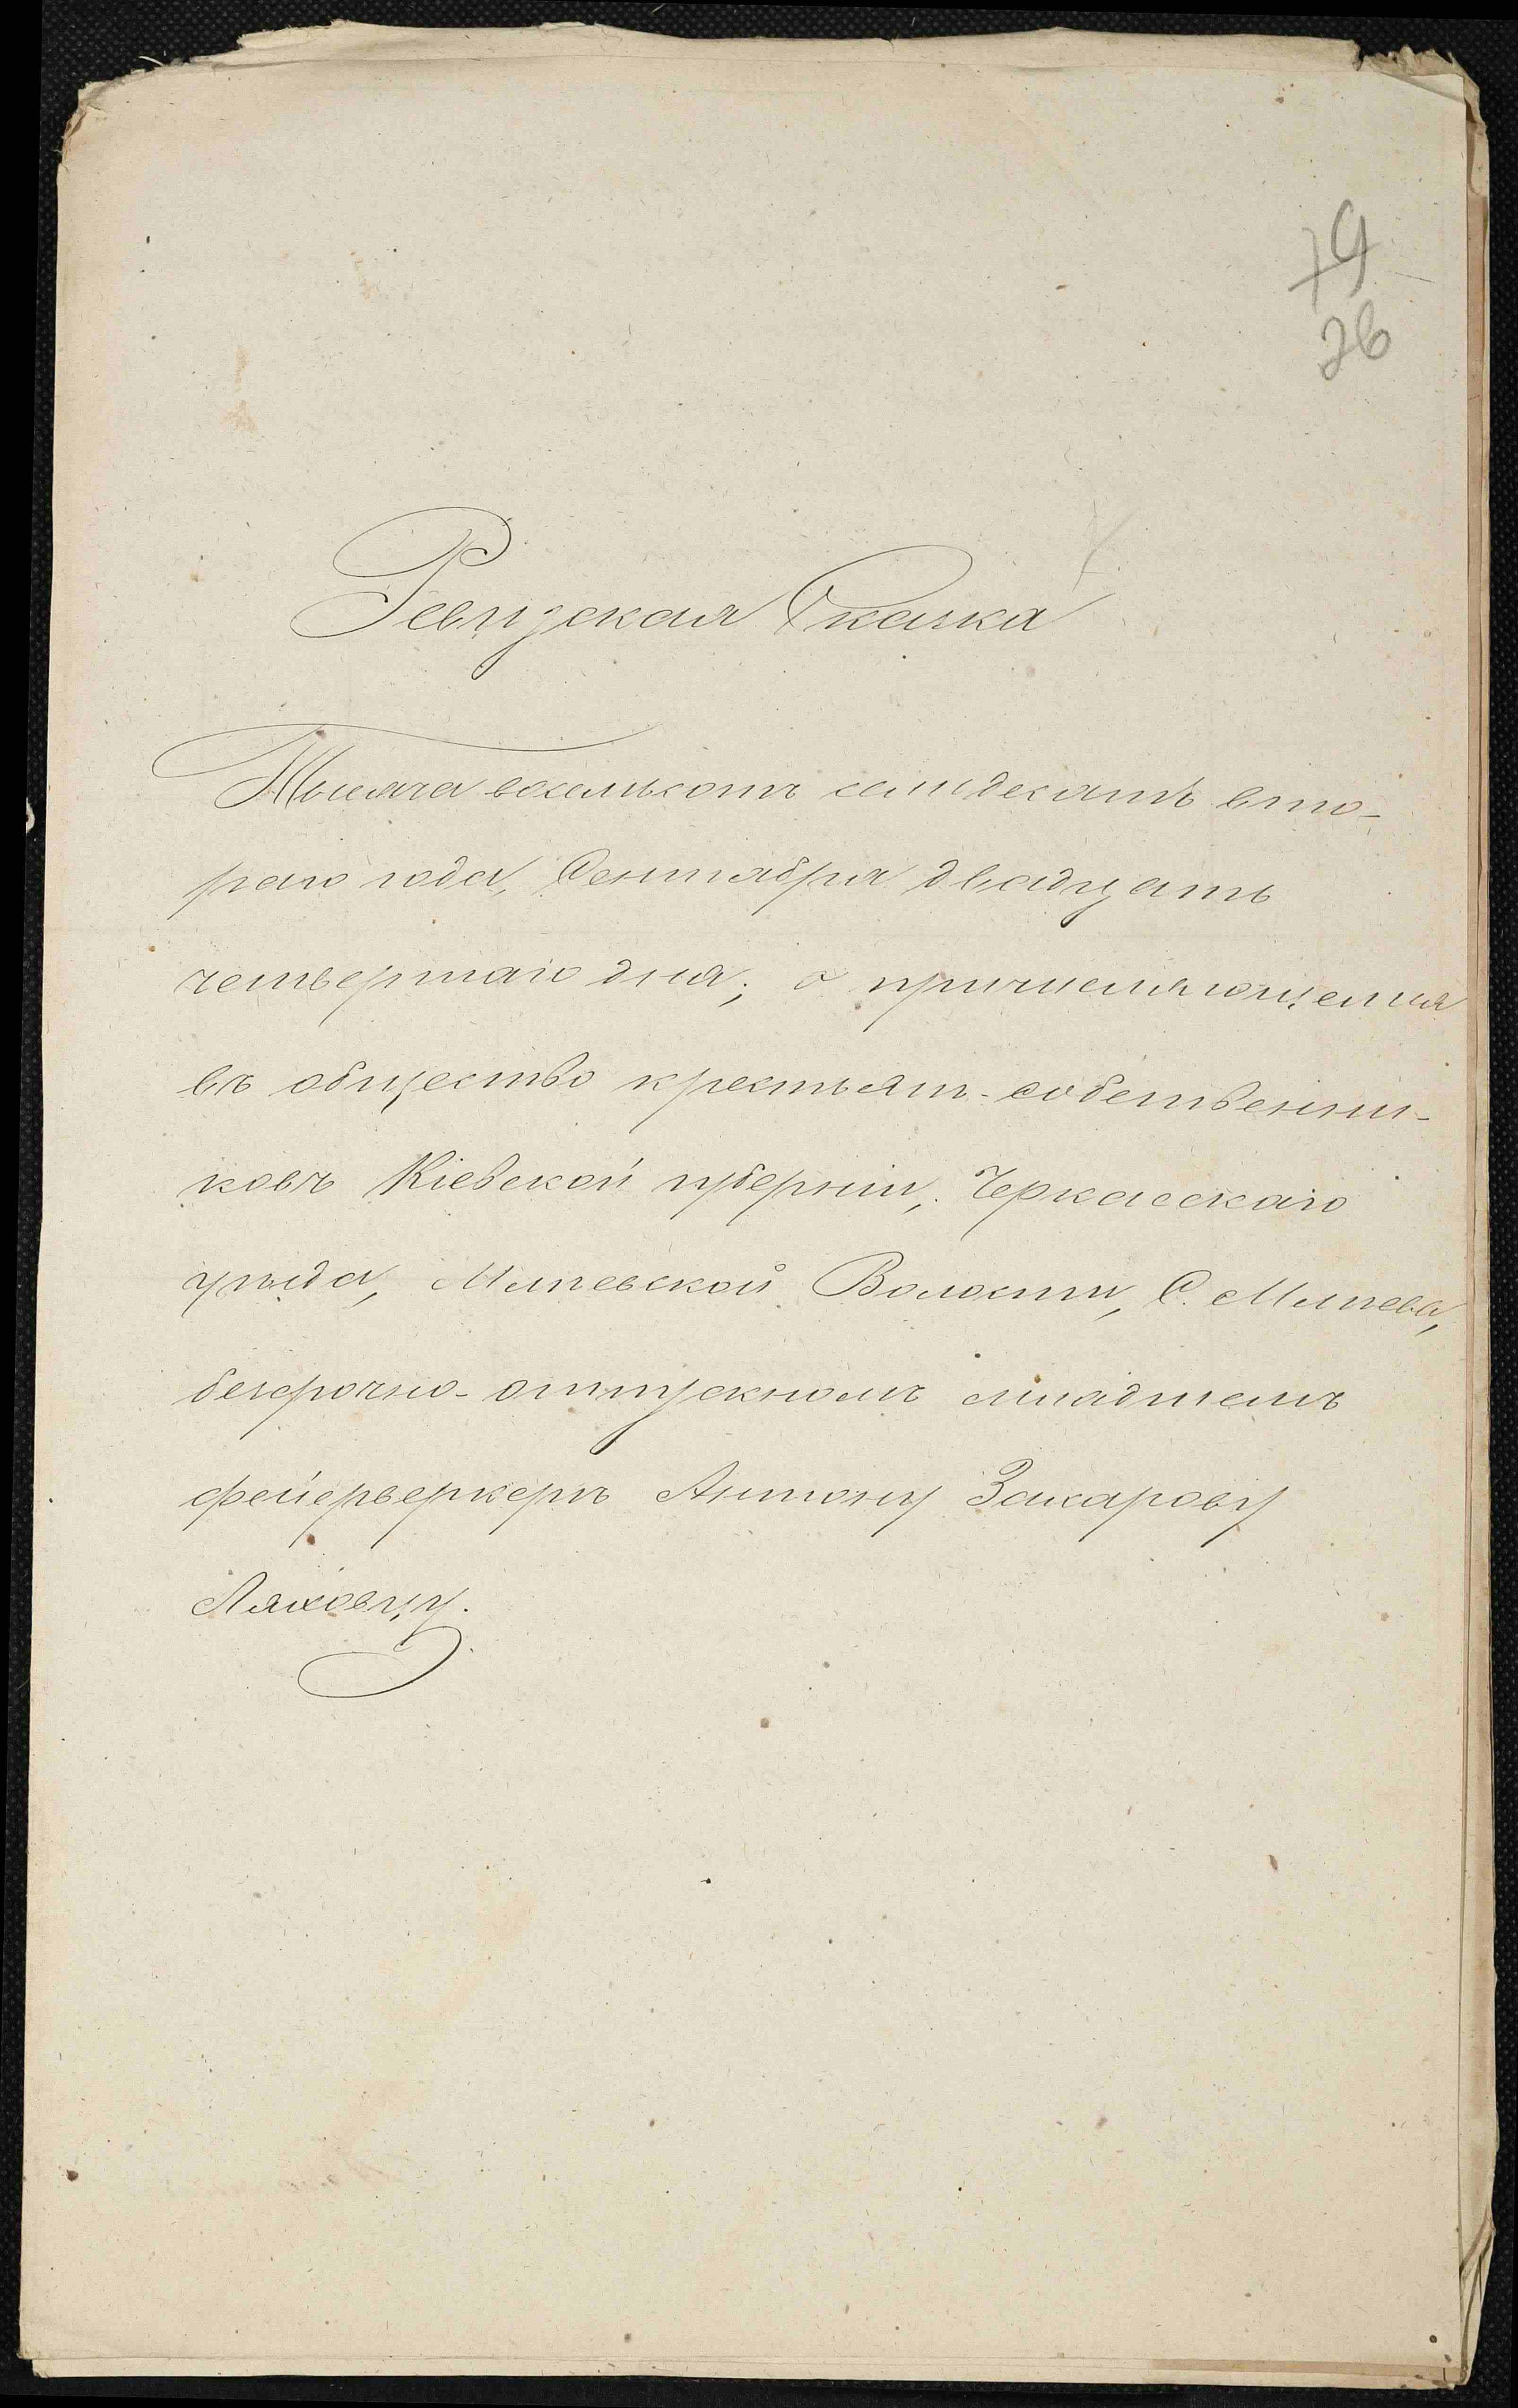 26
Ревизская Сказка
Тысяча восемьсотъ семдесятъ вто-
раго года, Сентября двадцать
четвертаго дня; о причисляющемся
въ общество крестьян-собственни-
ковъ Кіевской губерніи, Черкасскаго
уѣзда, Мліевской Волости, С. Мліева,
безсрочно-отпускномъ младшемъ
фейерверкерѣ Антону Захарову
Ляховцу.